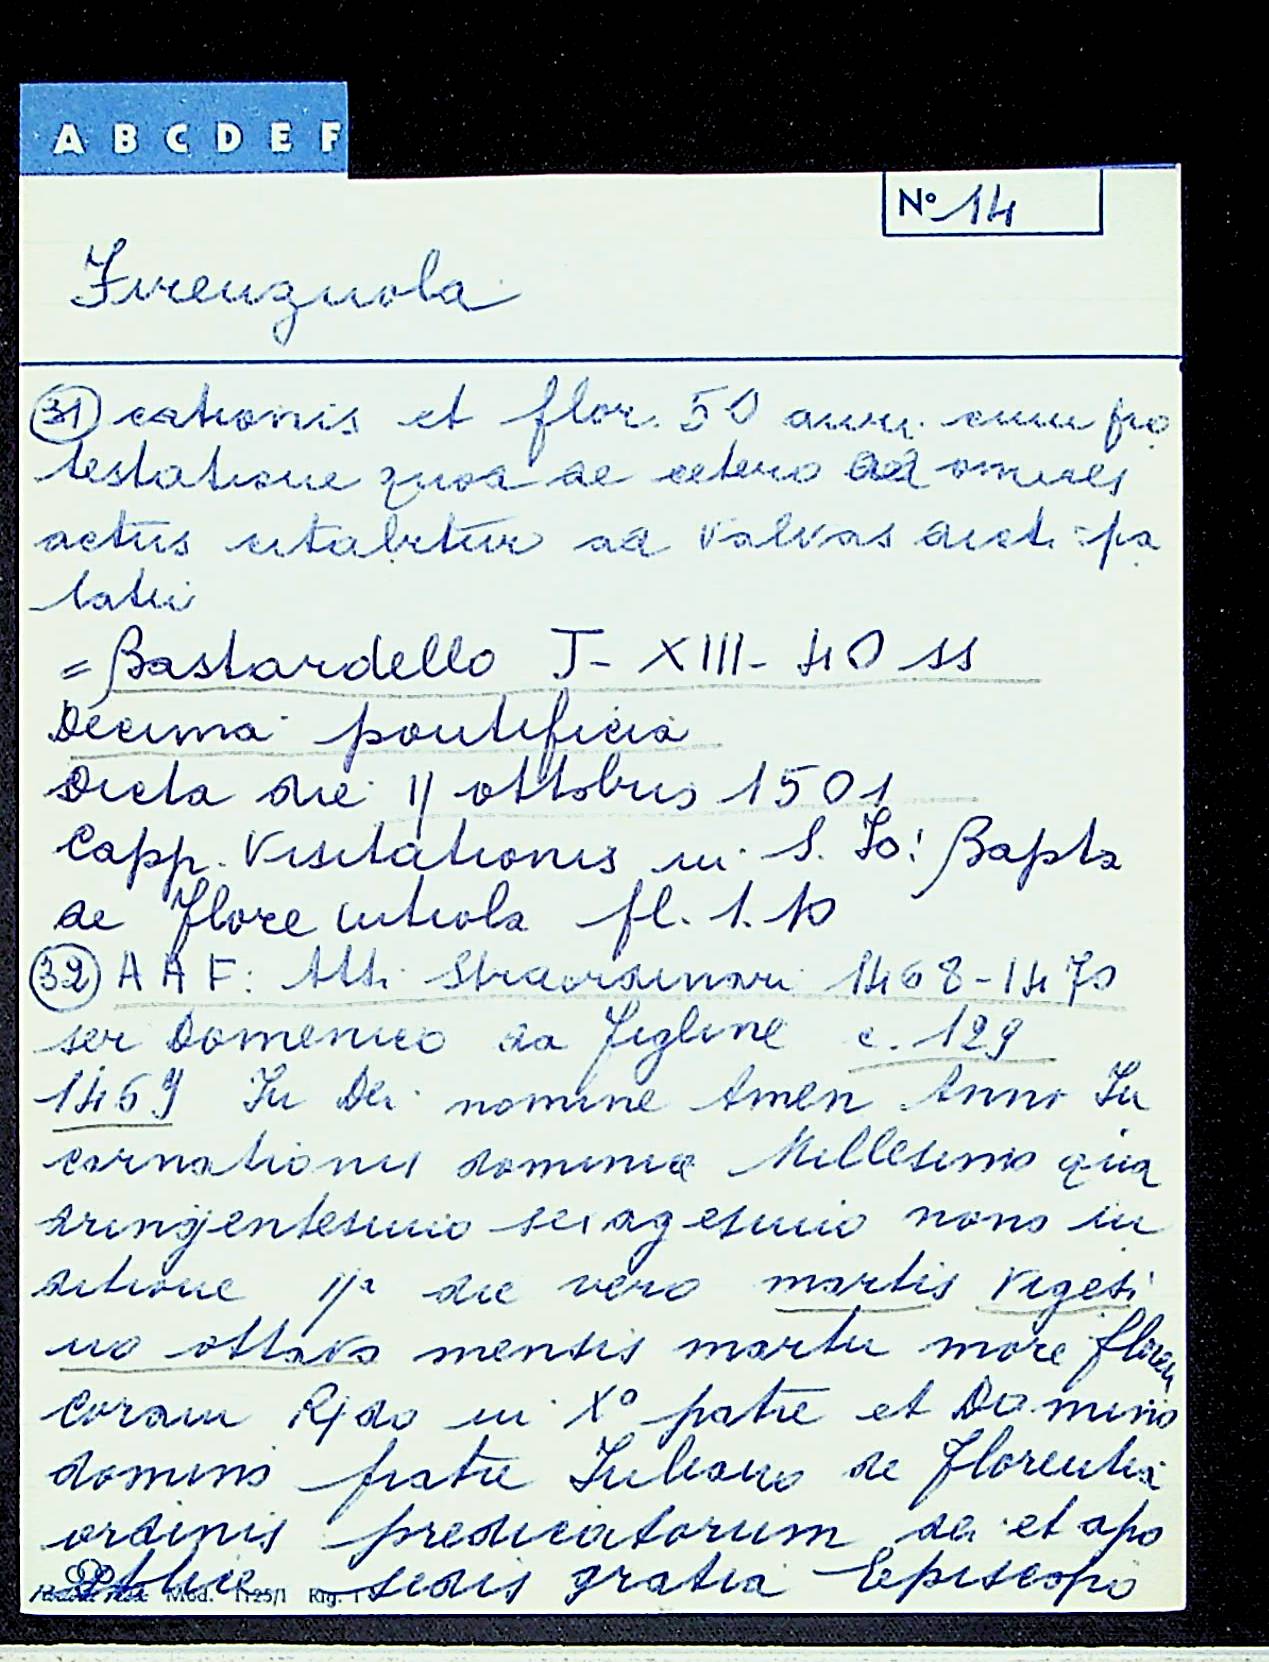 A B C D E F
N° 14
Firenzuola
31 cationis et flor. 50 auri. cum pro
testatione quod de cetero ad omnes
actus citabitur ad valvas dicti pa
latii
= Bastardello J - XIII - 40 ss
Decima pontificia
Dicta die 11 ottobris 1501
Capp. Visitationis in S. Io: Bapta
de Florentiola fl. 1. 10
32 A A F: Atti Straordinari 1468-1470
ser Domenico da Figline c. 129
1469 In Dei nomine Amen Anno In
carnationis dominice Millesimo qua
dringentesimo sexagesimo nono in
ditione IIª die vero martis vigesi
mo ottavo mensis martii more floren
coram Rdo in Xº patre et Domino
domino fratre Iuliano de Florentia
ordinis predicatorum dei et apo
stolice sedis gratia Episcopo
Mod. 1125/1 Rig. 1